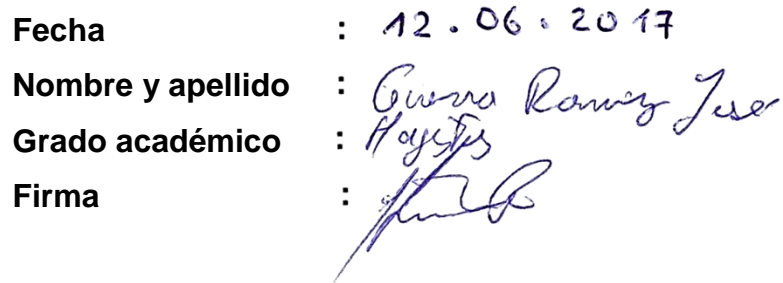 Fecha : 12.06.2017
Nombre y apellido : Guerra Ramirez Jose
Grado académico : Magister
Firma :